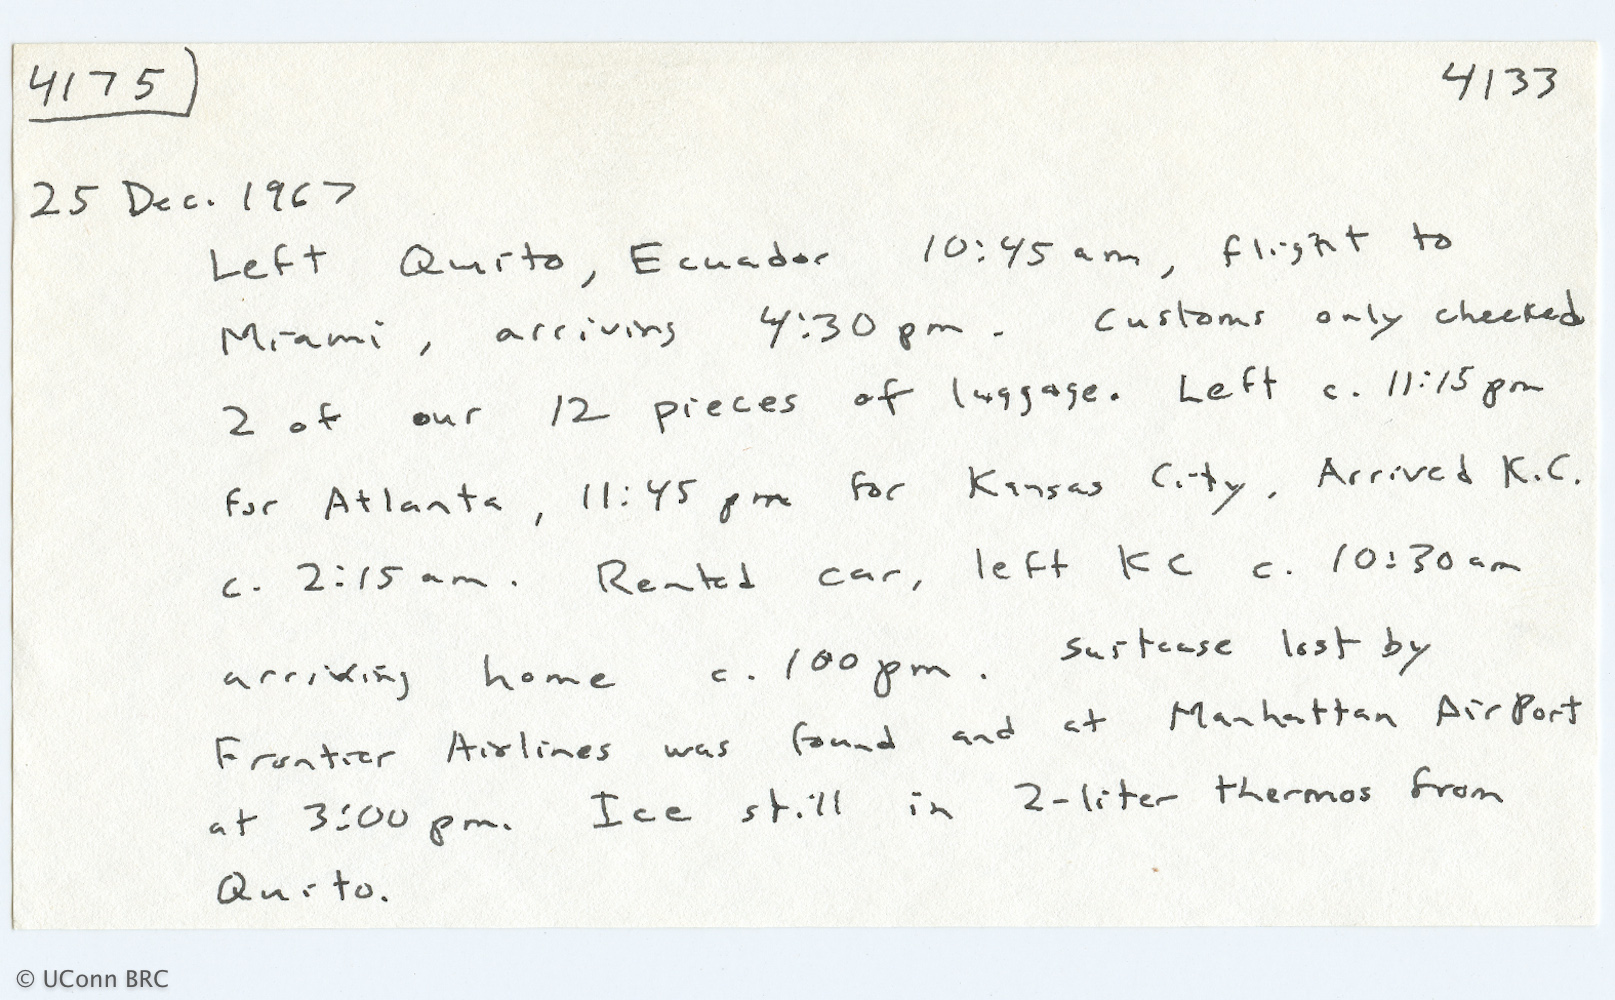 4175) 4133
25 Dec. 1967
Left Quito, Ecuador 10:45 am, flight to
Miami, arriving 4:30 pm. Customs only checked
2 of our 12 pieces of luggage. Left c. 11:15 pm
for Atlanta, 11:45 pm for Kansas City. Arrived K.C.
c. 2:15 am. Rented car, left KC c. 10:30 am
arriving home c. 100 pm. Suitcase lost by
Frontier Airlines was found and at Manhattan AirPort
at 3:00 pm. Ice still in 2-liter thermos from
Quito.
© UConn BRC